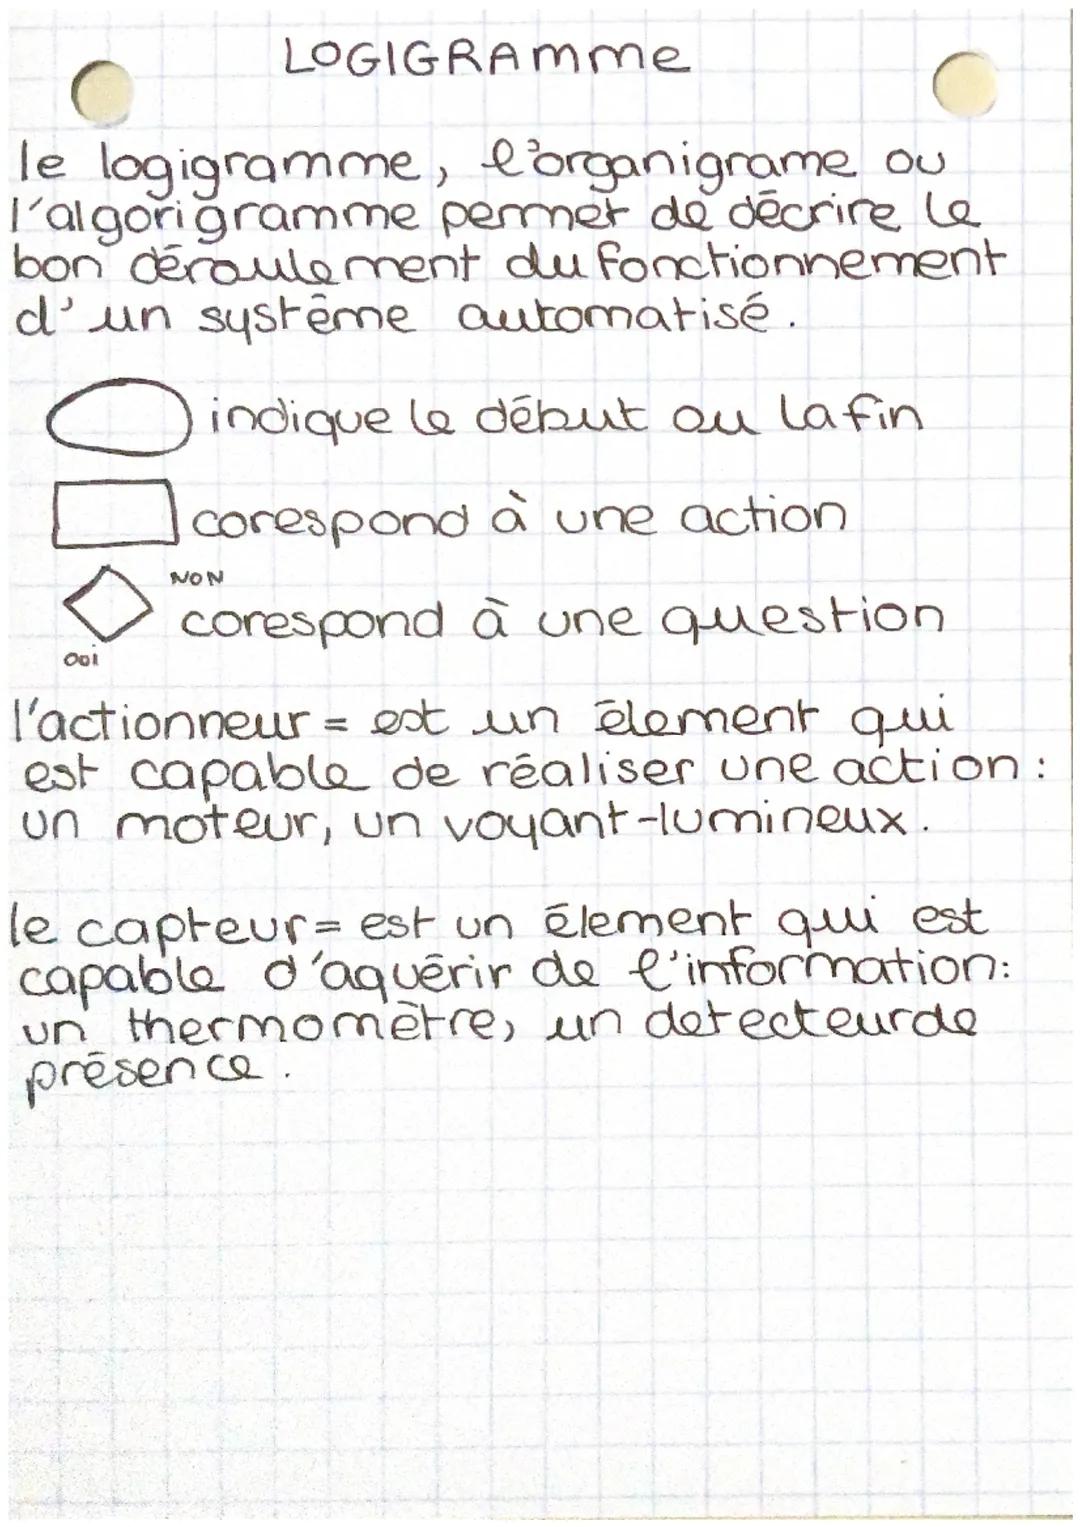 LOGIGRAmme
le logigramme, l'organigrame ou
l'algorigramme permet de décrire le
bon déroulement du fonctionnement
d'un système automatisé.
indique le début ou la fin
corespond à une action
NON
corespond à une question
OUI
l'actionneur = est un élement qui
est capable de réaliser une action :
un moteur, un voyant-lumineux.
le capteur = est un élement qui est
capable d'aquérir de l'information:
un thermomètre, un detecteur de
présence.